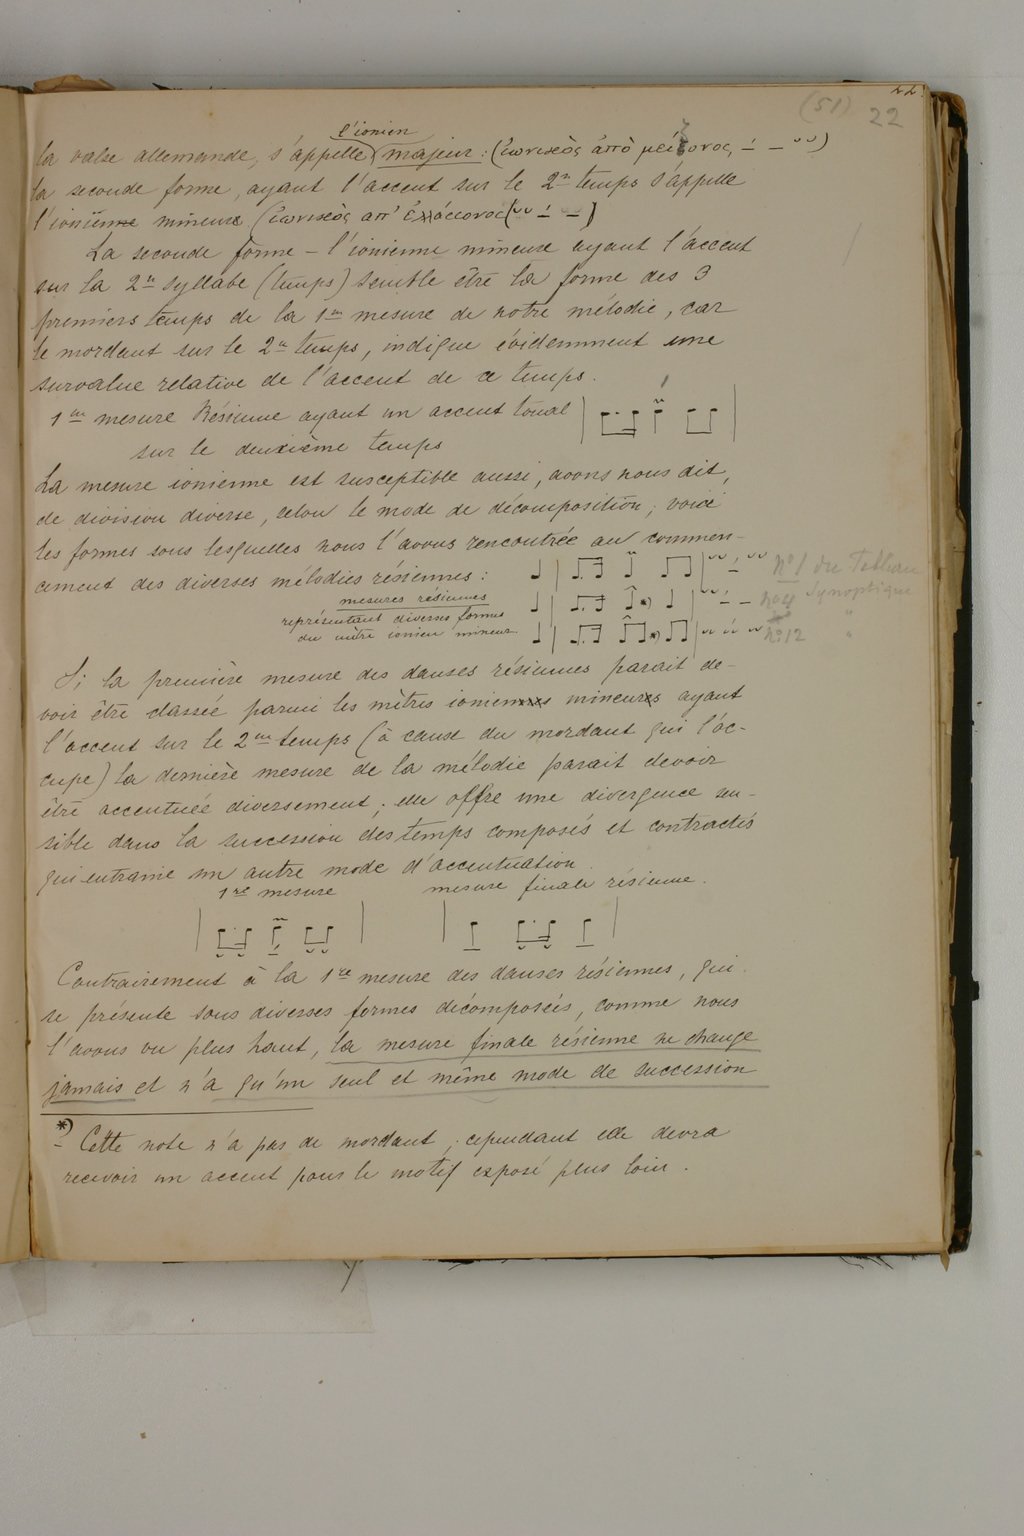 22.
(51) 22
l'ionien
la valse allemande, s'appelle majeur : (ἰωνικὸς ἀπὸ μείζονος, – – ᴗᴗ)
la seconde forme, ayant l'accent sur le 2ᵐ temps s'appelle
l'ionien mineur (ἰωνικὸς απ' ἐλάσσονος (ᴗᴗ – –)
La seconde forme – l'ionienne mineure ayant l'accent
sur la 2ᵐ syllabe (temps) semble être la forme des 3
premiers temps de la 1ᵐ mesure de notre mélodie, car
le mordant sur le 2ᵐ temps, indique évidemment une
survalue relative de l'accent de ce temps.
1ᵐ mesure Résienne ayant un accent tonal
sur le deuxième temps
La mesure ionienne est susceptible aussi, avons nous dit,
de division diverse, selon le mode de décomposition; voici
les formes sous lesquelles nous l'avons rencontrée au commen-
cement des diverses mélodies résiennes :
mesures résiennes
représentant diverses formes
du mètre ionien mineur.
nº 1 du Tableau
nº 4 Synoptique
nº 12 "
Si la première mesure des danses résiennes parait de-
voir être classée parmi les mètres ioniens mineurs ayant
l'accent sur le 2ᵐᵉ temps (à cause du mordant qui l'oc-
cupe) la dernière mesure de la mélodie parait devoir
être accentuée diversement; elle offre une divergence sen-
sible dans la succession des temps composés et contractés
qui entraine un autre mode d'accentuation.
1ʳᵉ mesure mesure finale résienne.
Contrairement à la 1ʳᵉ mesure des danses résiennes, qui
se présente sous diverses formes décomposées, comme nous
l'avons vu plus haut, la mesure finale résienne ne change
jamais et n'a qu'un seul et même mode de succession
*) Cette note n'a pas de mordant, cependant elle devra
recevoir un accent pour le motif exposé plus loin.